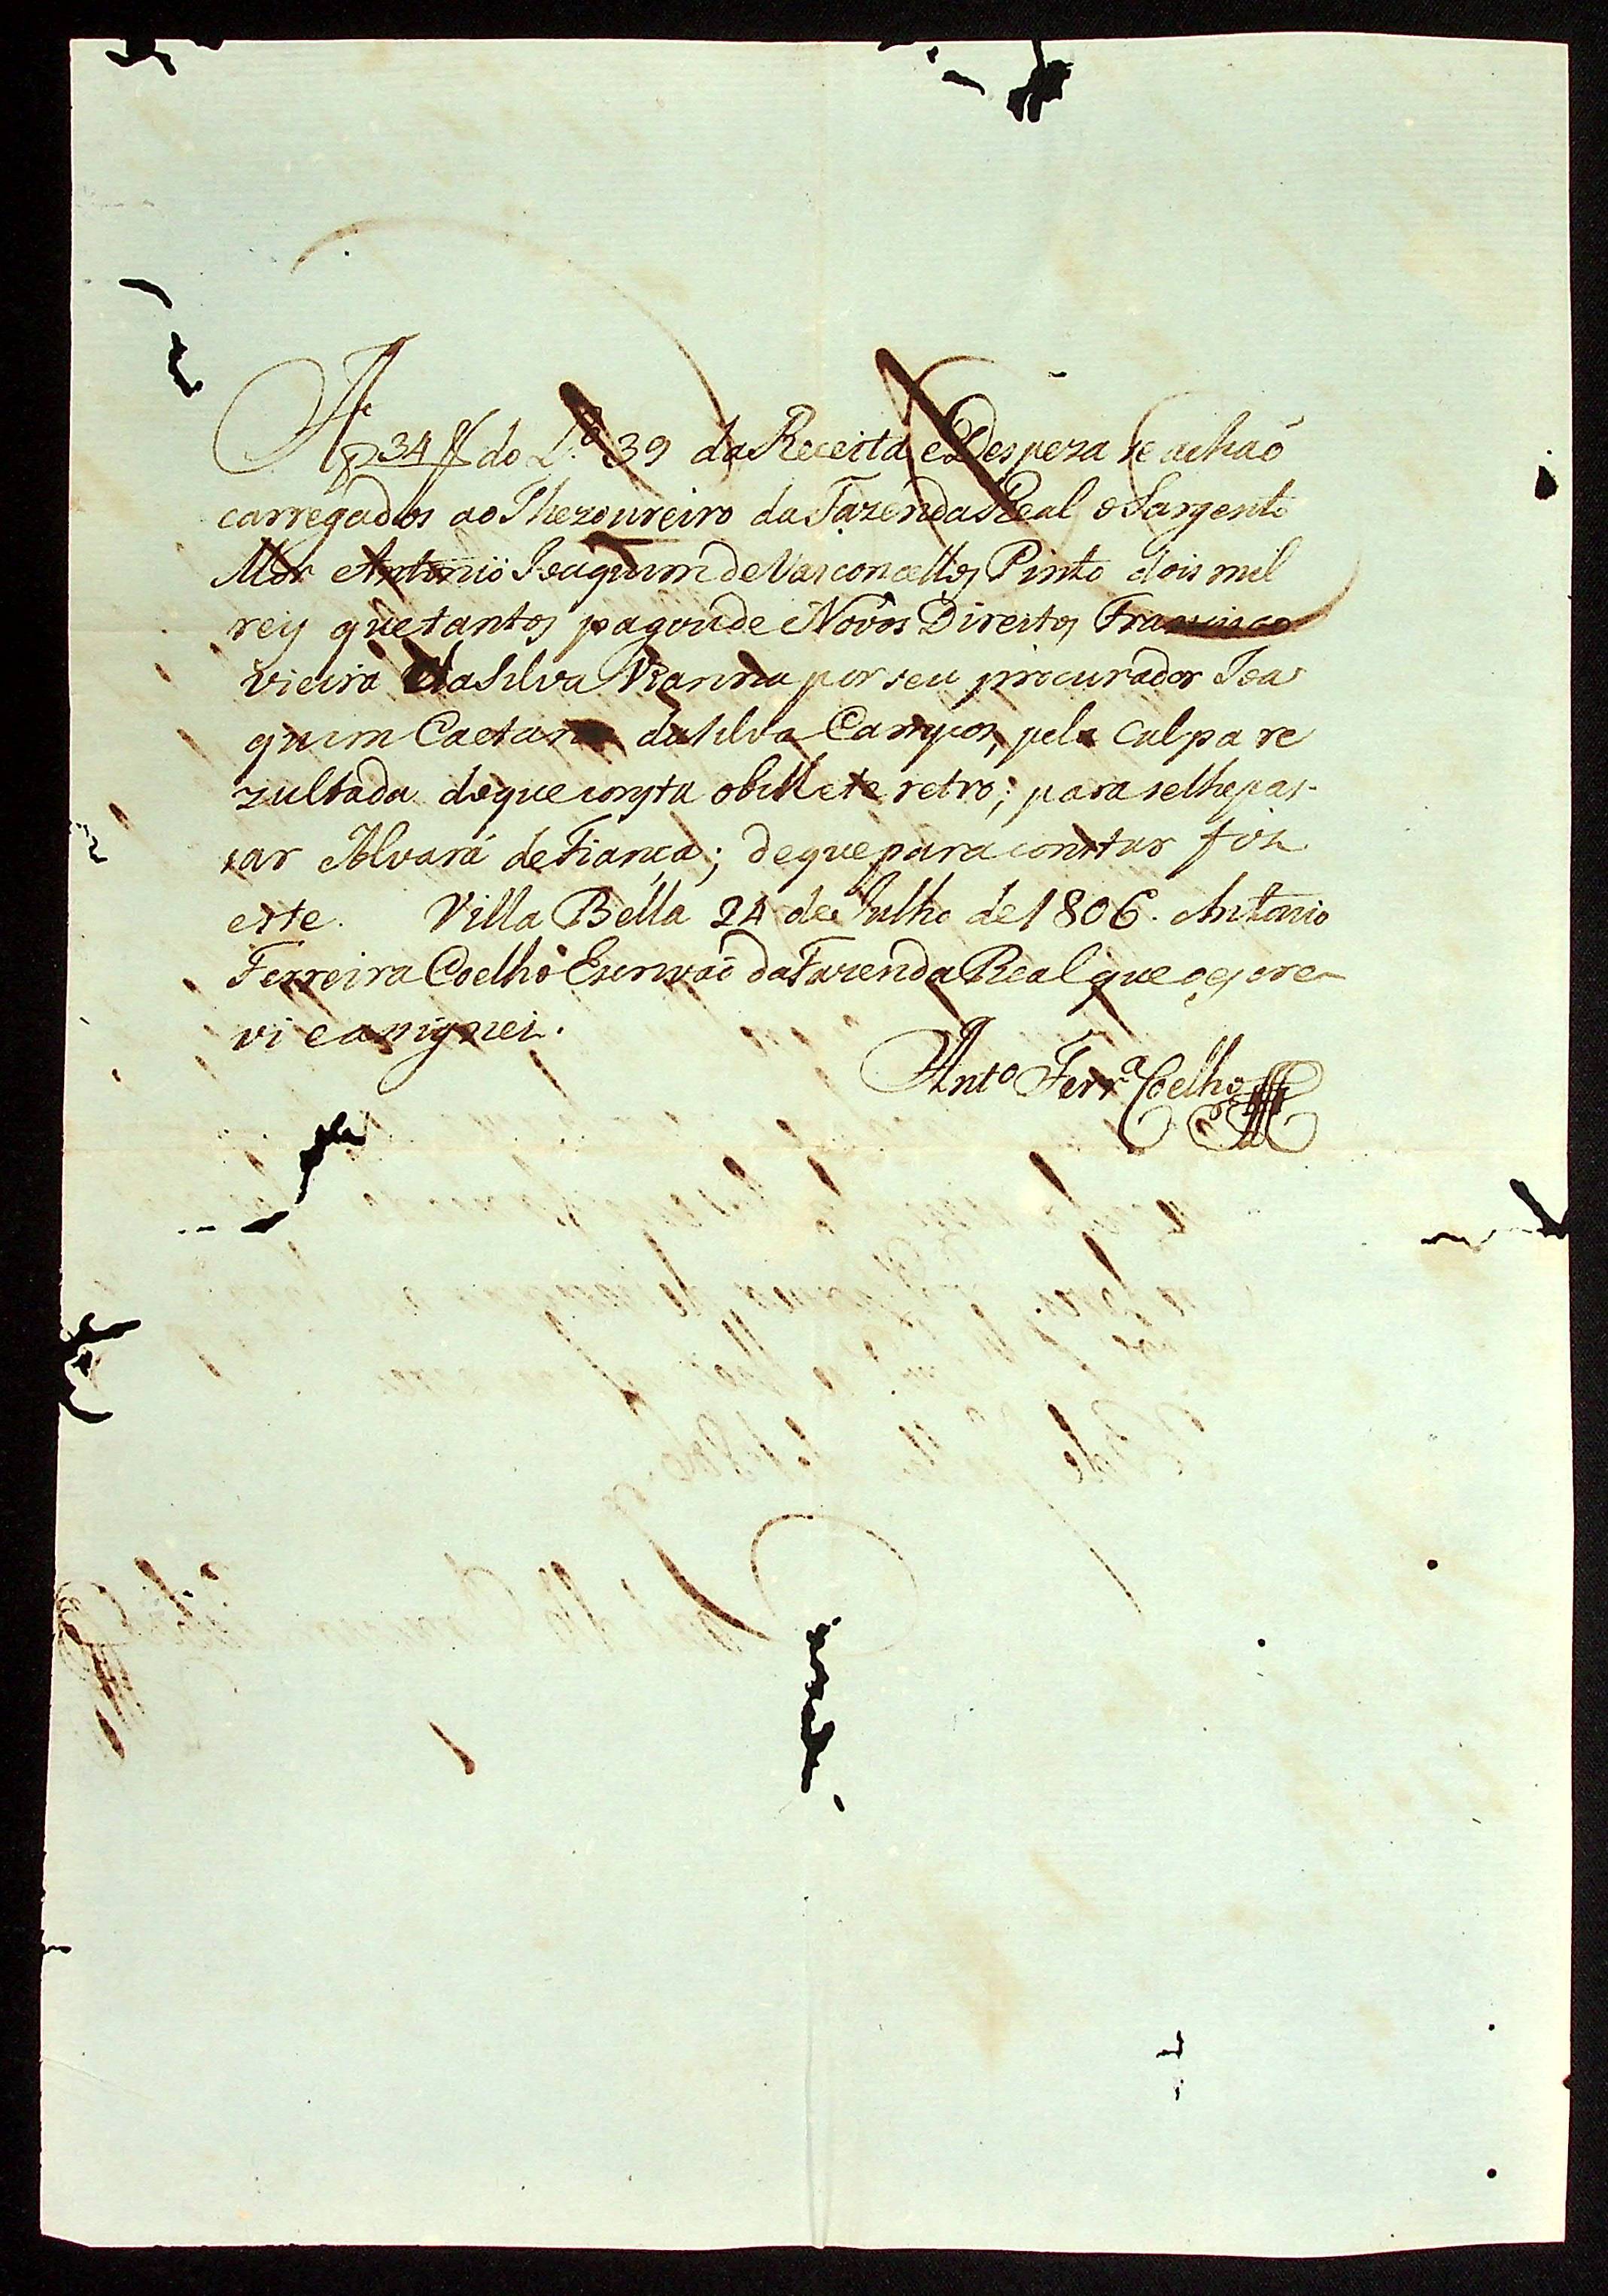 Af 34 do L.º 39 da Receita e Despeza se achaõ
carregados ao Thezoureiro da Fazenda Real o Sargento
Mór Antonio Joaquim de Vasconcellos Pinto dois mil
reis que tantos pagou de Novos Direitos Francisco
Vieira da Silva Vianna por seu procurador Joa
quim Caetano da Silva Campos, pela culpa re
zultada de que consta o bilhete retro; para se lhe pas-
sar Alvará de Fiança; de que para constar fiz
este. Villa Bella 24 de Julho de 1806. Antonio
Ferreira Coelho Escrivaõ da Fazenda Real que o escre-
vi e assignei.
Ant.º Ferr.ª Coelho